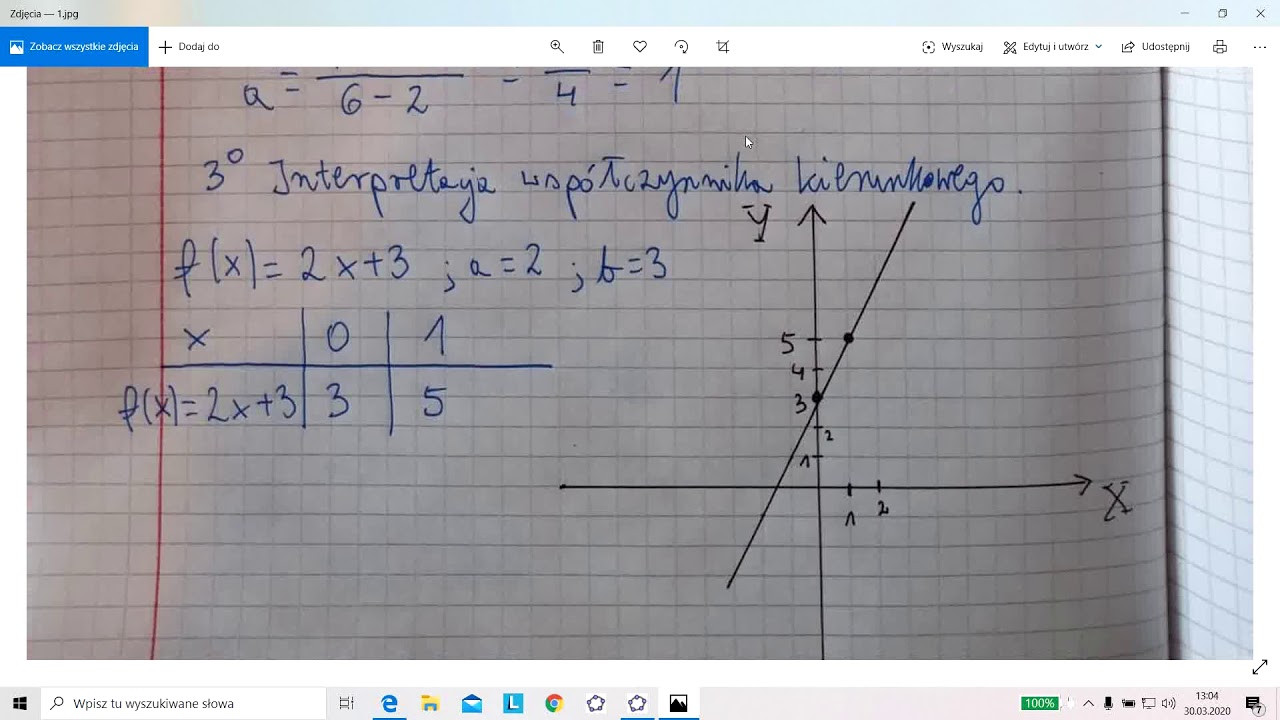 Zdjęcia — 1.jpg
Zobacz wszystkie zdjęcia
Dodaj do
Wyszukaj
Edytuj i utwórz
Udostępnij
a = 6 - 2 - 4 = 1
3° Interpretacja współczynnika kierunkowego.
Y
f(x) = 2x+3 ; a = 2 ; b = 3
x 0 1
f(x) = 2x+3 3 5
5
4
3
2
1
1 2
X
Wpisz tu wyszukiwane słowa
100%
13:04
30.03.2020
7